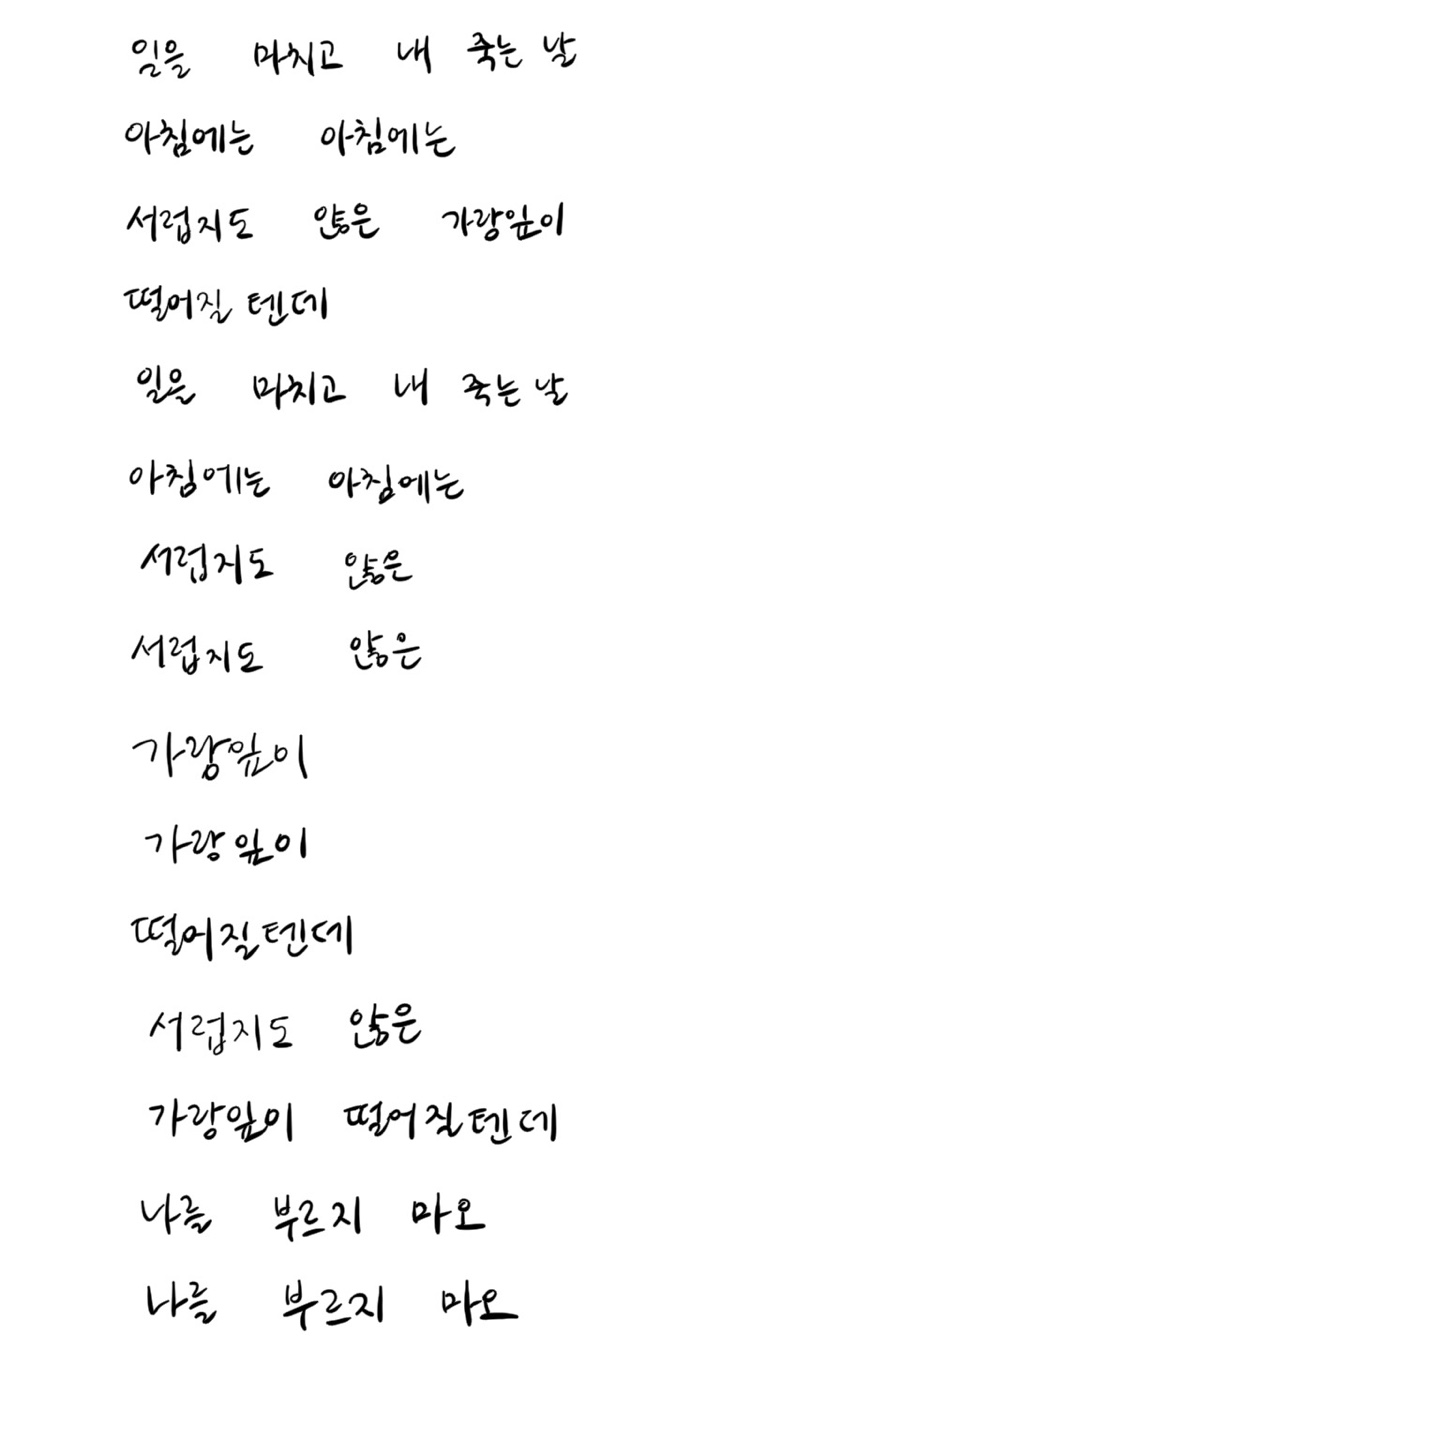 일을 마치고 내 죽는 날
아침에는 아침에는
서럽지도 않은 가랑잎이
떨어질 텐데
일을 마치고 내 죽는 날
아침에는 아침에는
서럽지도 않은
서럽지도 않은
가랑잎이
가랑잎이
떨어질텐데
서럽지도 않은
가랑잎이 떨어질텐데
나를 부르지 마오
나를 부르지 마오